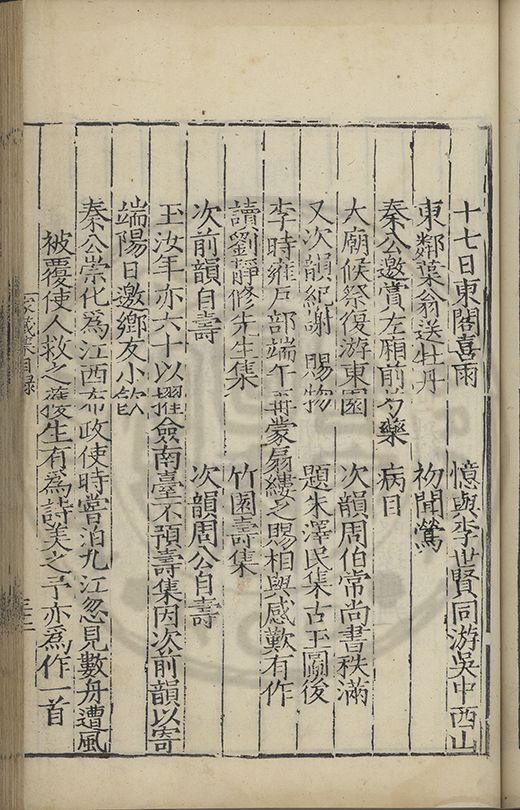 十七日東閣喜雨　憶與李世賢同游吳中西山
東鄰葉翁送牡丹　初聞鶯
秦公邀賞左廂前芍藥　病目
大廟候祭復游東園　次韻周伯常尚書秩滿
又次韻紀謝　賜物　題朱澤民集古玉圖後
李時雍戶部端午再蒙扇縷之賜相與感歎有作
讀劉靜修先生集　竹園壽集
次前韻自壽　次韻周公自壽
玉汝年亦六十以擢僉南臺不預壽集因次前韻以寄
端陽日邀鄉友小飲
秦公崇化為江西布政使時嘗泊九江忽見數舟遭風
被覆使人救之獲生有為詩美之予亦為作一首
家藏集目錄